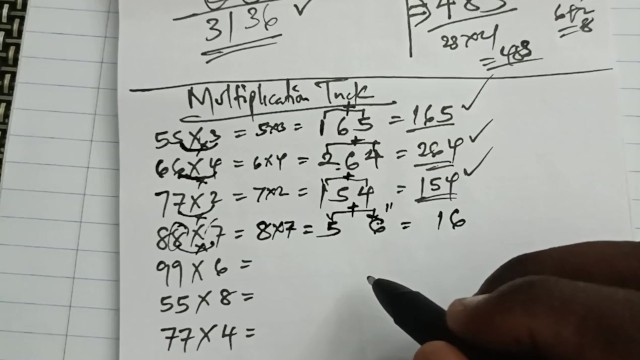 3136 ✓
483
28×4
= 488
Multiplication Trick
55×3 = 5×3 = 165 = 165 ✓
66×4 = 6×4 = 264 = 264 ✓
77×2 = 7×2 = 154 = 154 ✓
88×7 = 8×7 = 5 6 = 16
99×6 =
55×8 =
77×4 =